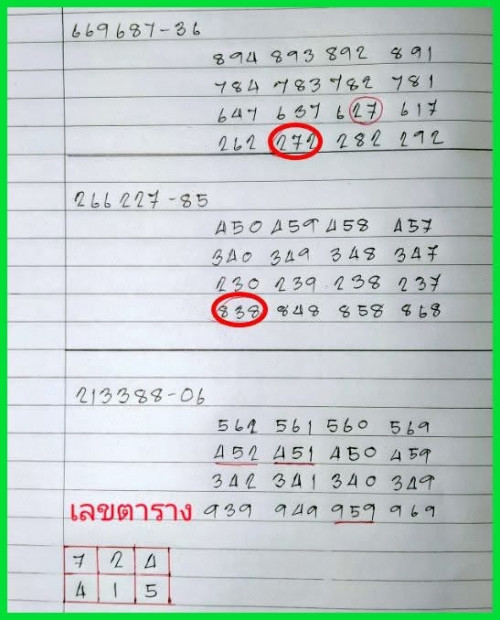 669687-36
894 893 892 891
784 783 782 781
647 637 627 617
262 272 282 292
266227-85
450 459 458 457
340 349 348 347
230 239 238 237
838 848 858 868
213388-06
562 561 560 569
452 451 450 459
342 341 340 349
เลขตาราง 939 949 959 969
7 2 4
4 1 5